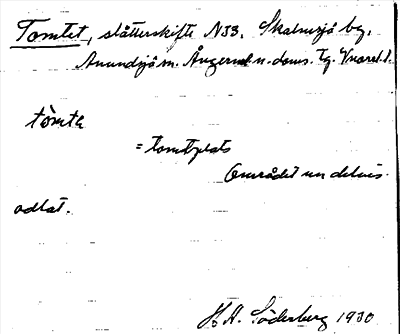 Tomtet, slåtterskifte N33, Skalmsjö by,
Anundsjö sn. Ångerml. n. doms. Tg.
tòmtɘ
= tomtplats
Området nu delvis
odlat.
H.A. Söderberg 1930